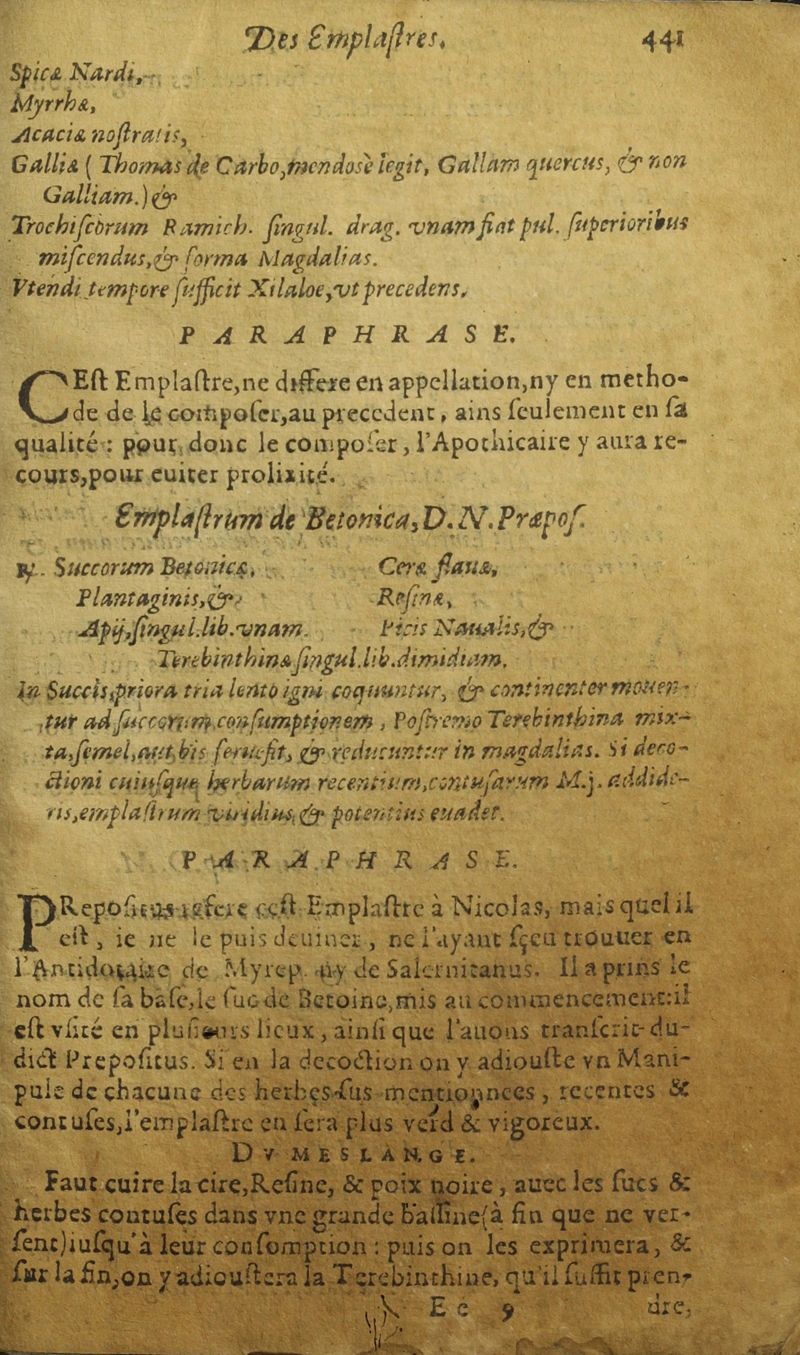 Des Emplaſtres. 441
Spicæ Nardi,
Myrrhæ,
Acaciæ noſtratis,
Galliæ ( Thomas de Carbo, mendosè legit, Gallam quercus, & non
Galliam.) &
Trochiſcorum Ramich. ſingul. drag. vnam fiat pul. ſuperioribus
miſcendus, & forma Magdalias.
Vtendi tempore ſufficit Xilaloe, vt precedens.
PARAPHRASE.
CEſt Emplaſtre, ne differe en appellation, ny en metho-
de de le compoſer, au precedent, ains ſeulement en ſa
qualité : pour donc le compoſer, l'Apothicaire y aura re-
cours, pour euiter prolixité.
Emplaſtrum de Betonica, D. N. Præpoſ.
℞. Succorum Betonicæ, Ceræ flauæ,
Plantaginis, & Reſinæ,
Apij, ſingul. lib. vnam. Picis Naualis, &
Terebinthinæ ſingul. lib. dimidiam.
In Succis, priora tria lento igni coquuntur, & continenter mouen-
tur ad ſuccorum conſumptionem, Poſtremo Terebinthina mix-
ta, ſemel, aut bis feruefit, & reducuntur in magdalias. Si deco-
ctioni cuiuſque herbarum recentium, contuſarum M.j. addide-
ris, emplaſtrum viridius, & potentius euadet.
PARAPHRASE.
PRepoſitus refere ceſt Emplaſtre à Nicolas, mais quel il
eſt, ie ne le puis deuiner, ne l'ayant ſçeu trouuer en
l'Antidotaire de Myrep. ny de Salernitanus. Il a prins le
nom de ſa baſe, le ſuc de Betoine, mis au commencement: il
eſt vſité en pluſieurs lieux, ainſi que l'auons tranſcrit du-
dict Prepoſitus. Si en la decoction on y adiouſte vn Mani-
pule de chacune des herbes ſus mentionnees, recentes &
contuſes, l'emplaſtre en ſera plus verd & vigoreux.
DV MESLANGE.
Faut cuire la cire, Reſine, & poix noire, auec les ſucs &
herbes contuſes dans vne grande Baſſine (à fin que ne ver-
ſent) iuſqu'à leur conſomption : puis on les exprimera, &
ſur la fin, on y adiouſtera la Terebinthine, qu'il ſuffit pren-
Ee 9 dre,